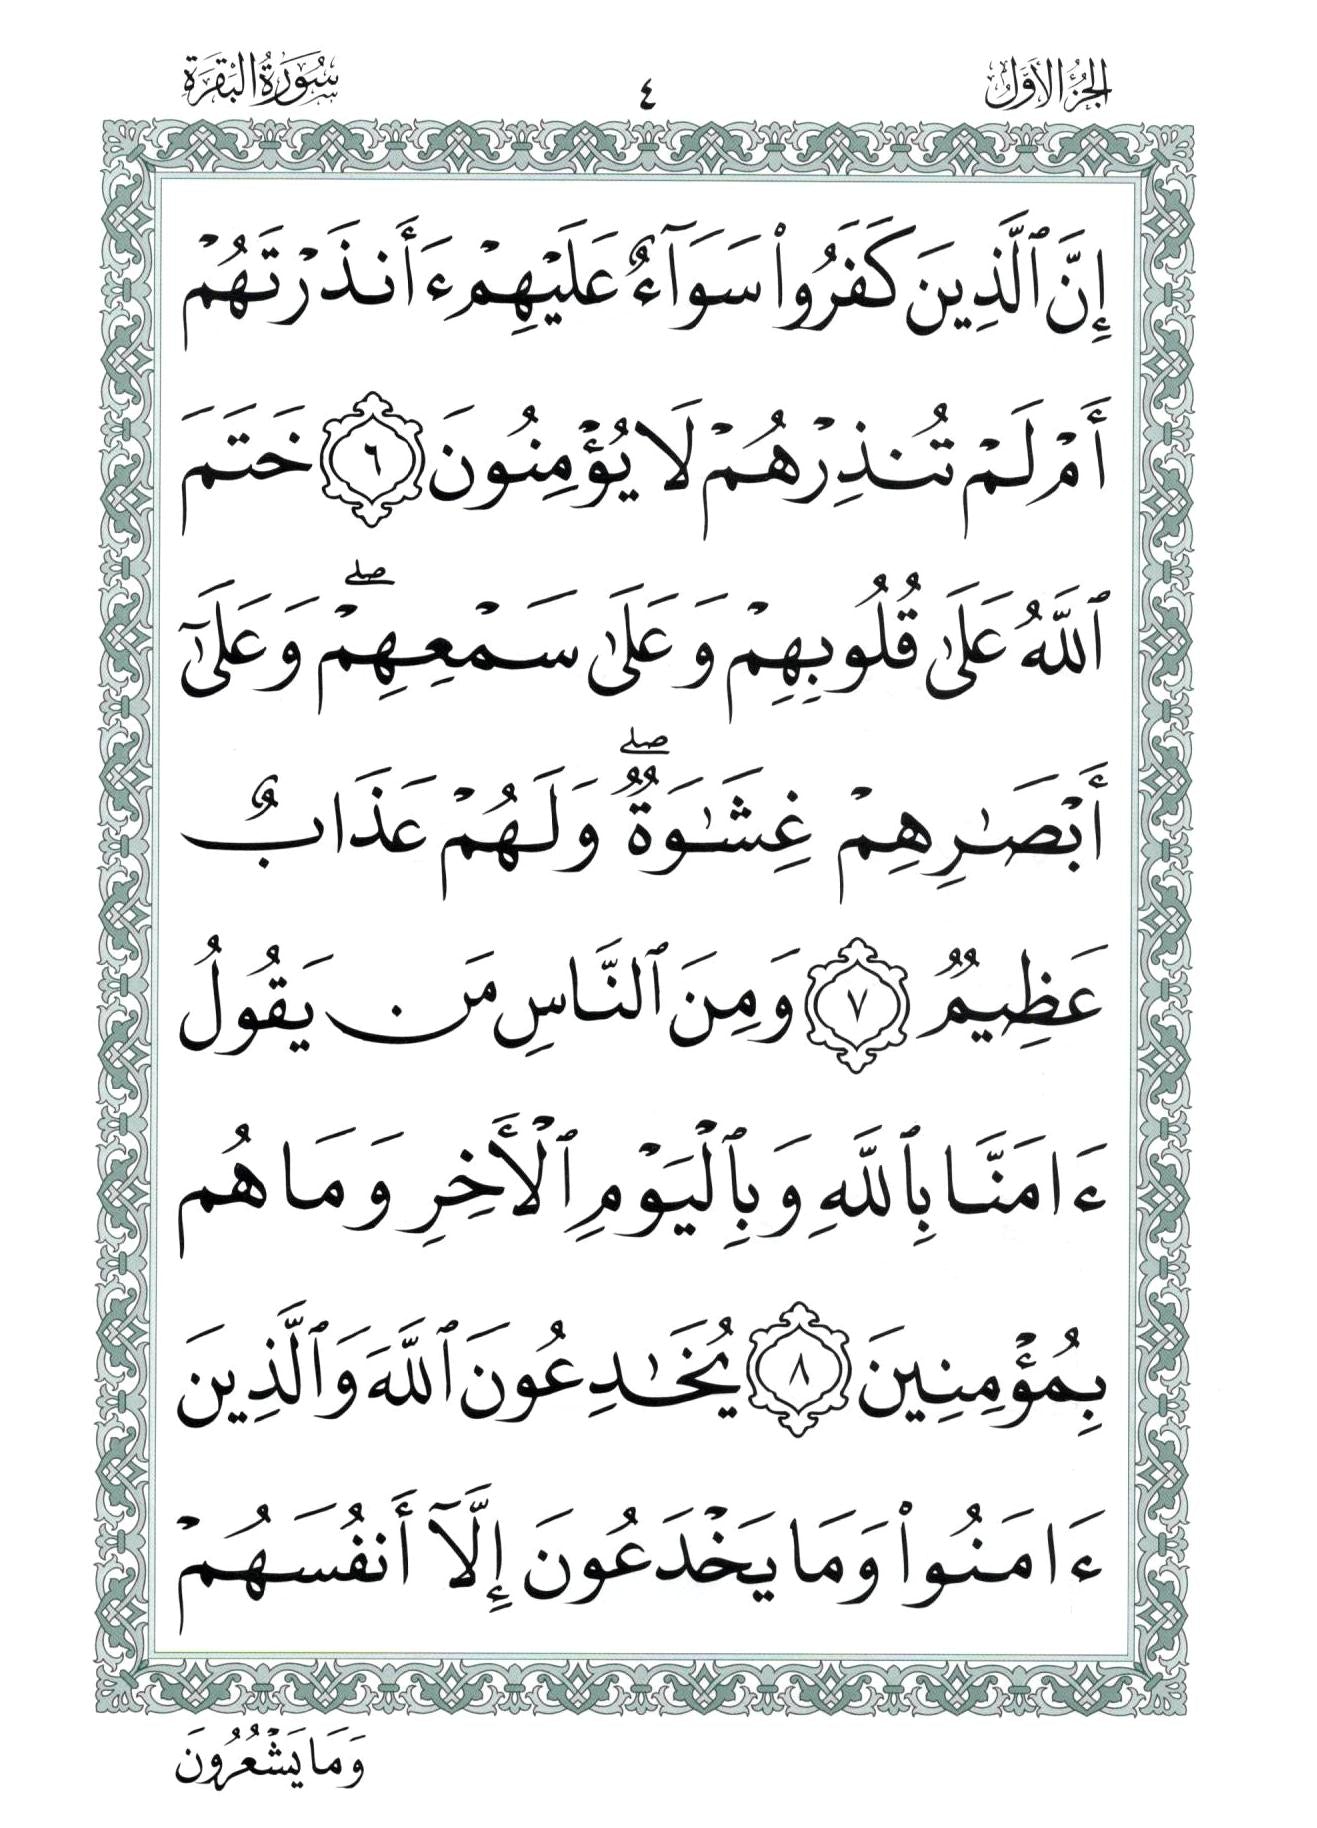 الجزء الأول
٤
سورة البقرة
إِنَّ ٱلَّذِينَ كَفَرُوا۟ سَوَآءٌ عَلَيْهِمْ ءَأَنذَرْتَهُمْ
أَمْ لَمْ تُنذِرْهُمْ لَا يُؤْمِنُونَ ٦ خَتَمَ
ٱللَّهُ عَلَىٰ قُلُوبِهِمْ وَعَلَىٰ سَمْعِهِمْ ۖ وَعَلَىٰٓ
أَبْصَـٰرِهِمْ غِشَـٰوَةٌ ۖ وَلَهُمْ عَذَابٌ
عَظِيمٌ ٧ وَمِنَ ٱلنَّاسِ مَن يَقُولُ
ءَامَنَّا بِٱللَّهِ وَبِٱلْيَوْمِ ٱلْأَخِرِ وَمَا هُم
بِمُؤْمِنِينَ ٨ يُخَـٰدِعُونَ ٱللَّهَ وَٱلَّذِينَ
ءَامَنُوا۟ وَمَا يَخْدَعُونَ إِلَّآ أَنفُسَهُمْ
وَمَا يَشْعُرُونَ